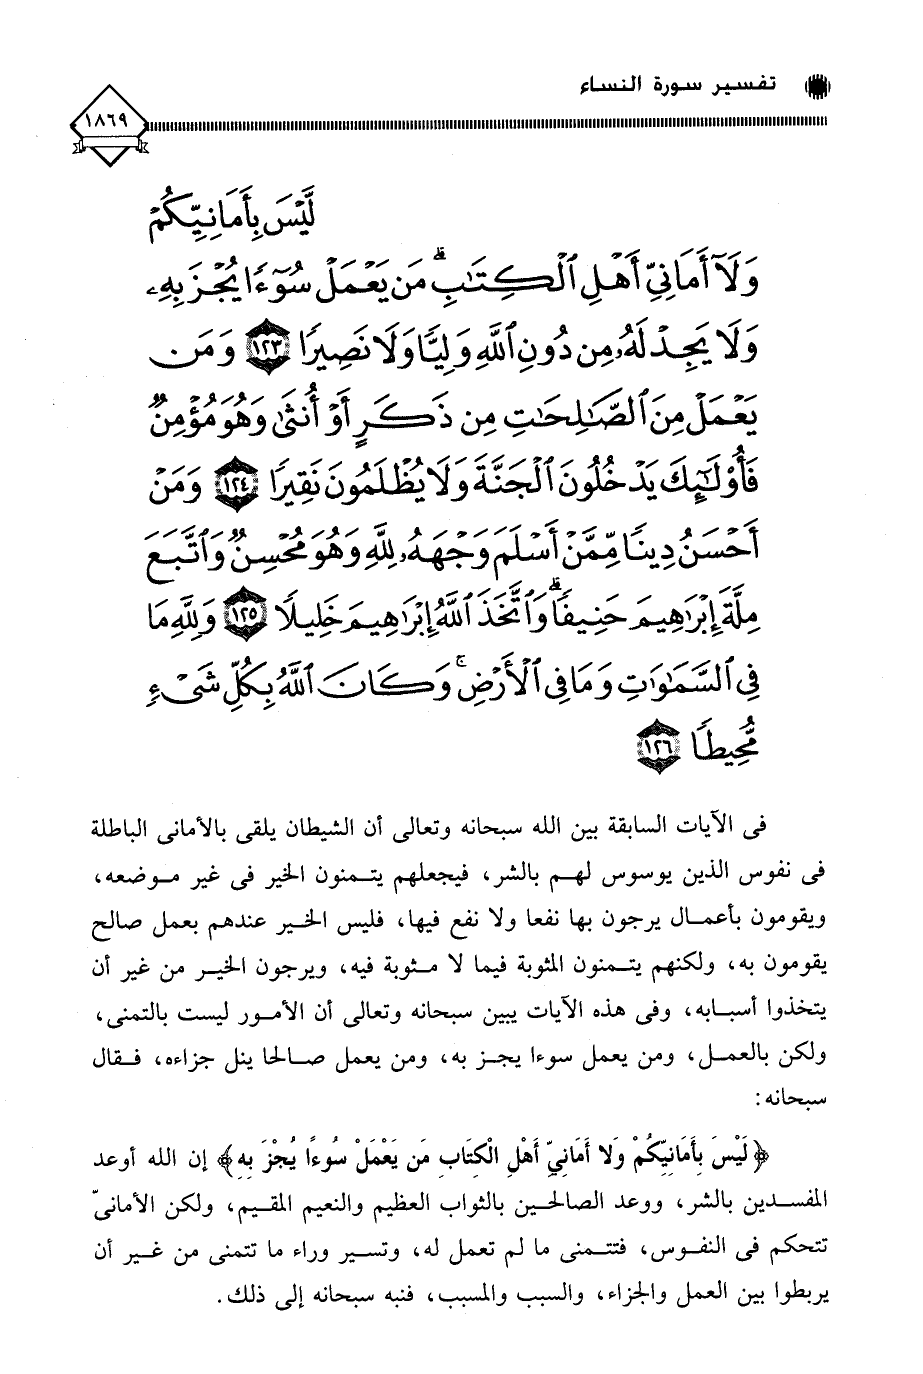 تفسير سورة النساء
١٨٦٩
لَّيْسَ بِأَمَانِيِّكُمْ
وَلَآ أَمَانِيِّ أَهْلِ ٱلْكِتَٰبِۗ مَن يَعْمَلْ سُوٓءًا يُجْزَ بِهِۦ
وَلَا يَجِدْ لَهُۥ مِن دُونِ ٱللَّهِ وَلِيًّا وَلَا نَصِيرًا ١٢٣ وَمَن
يَعْمَلْ مِنَ ٱلصَّٰلِحَٰتِ مِن ذَكَرٍ أَوْ أُنثَىٰ وَهُوَ مُؤْمِنٌ
فَأُو۟لَٰٓئِكَ يَدْخُلُونَ ٱلْجَنَّةَ وَلَا يُظْلَمُونَ نَقِيرًا ١٢٤ وَمَنْ
أَحْسَنُ دِينًا مِّمَّنْ أَسْلَمَ وَجْهَهُۥ لِلَّهِ وَهُوَ مُحْسِنٌ وَٱتَّبَعَ
مِلَّةَ إِبْرَٰهِيمَ حَنِيفًاۗ وَٱتَّخَذَ ٱللَّهُ إِبْرَٰهِيمَ خَلِيلًا ١٢٥ وَلِلَّهِ مَا
فِى ٱلسَّمَٰوَٰتِ وَمَا فِى ٱلْأَرْضِۚ وَكَانَ ٱللَّهُ بِكُلِّ شَىْءٍ
مُّحِيطًا ١٢٦
فى الآيات السابقة بين الله سبحانه وتعالى أن الشيطان يلقى بالأمانى الباطلة
فى نفوس الذين يوسوس لهم بالشر، فيجعلهم يتمنون الخير فى غير موضعه،
ويقومون بأعمال يرجون بها نفعا ولا نفع فيها، فليس الخير عندهم بعمل صالح
يقومون به، ولكنهم يتمنون المثوبة فيما لا مثوبة فيه، ويرجون الخير من غير أن
يتخذوا أسبابه، وفى هذه الآيات يبين سبحانه وتعالى أن الأمور ليست بالتمنى،
ولكن بالعمل، ومن يعمل سوءا يجز به، ومن يعمل صالحا ينل جزاءه، فقال
سبحانه:
﴿لَيْسَ بِأَمَانِيِّكُمْ وَلا أَمَانِيِّ أَهْلِ الْكِتَابِ مَن يَعْمَلْ سُوءًا يُجْزَ بِهِ﴾ إن الله أوعد
المفسدين بالشر، ووعد الصالحين بالثواب العظيم والنعيم المقيم، ولكن الأمانىّ
تتحكم فى النفوس، فتتمنى ما لم تعمل له، وتسير وراء ما تتمنى من غير أن
يربطوا بين العمل والجزاء، والسبب والمسبب، فنبه سبحانه إلى ذلك.